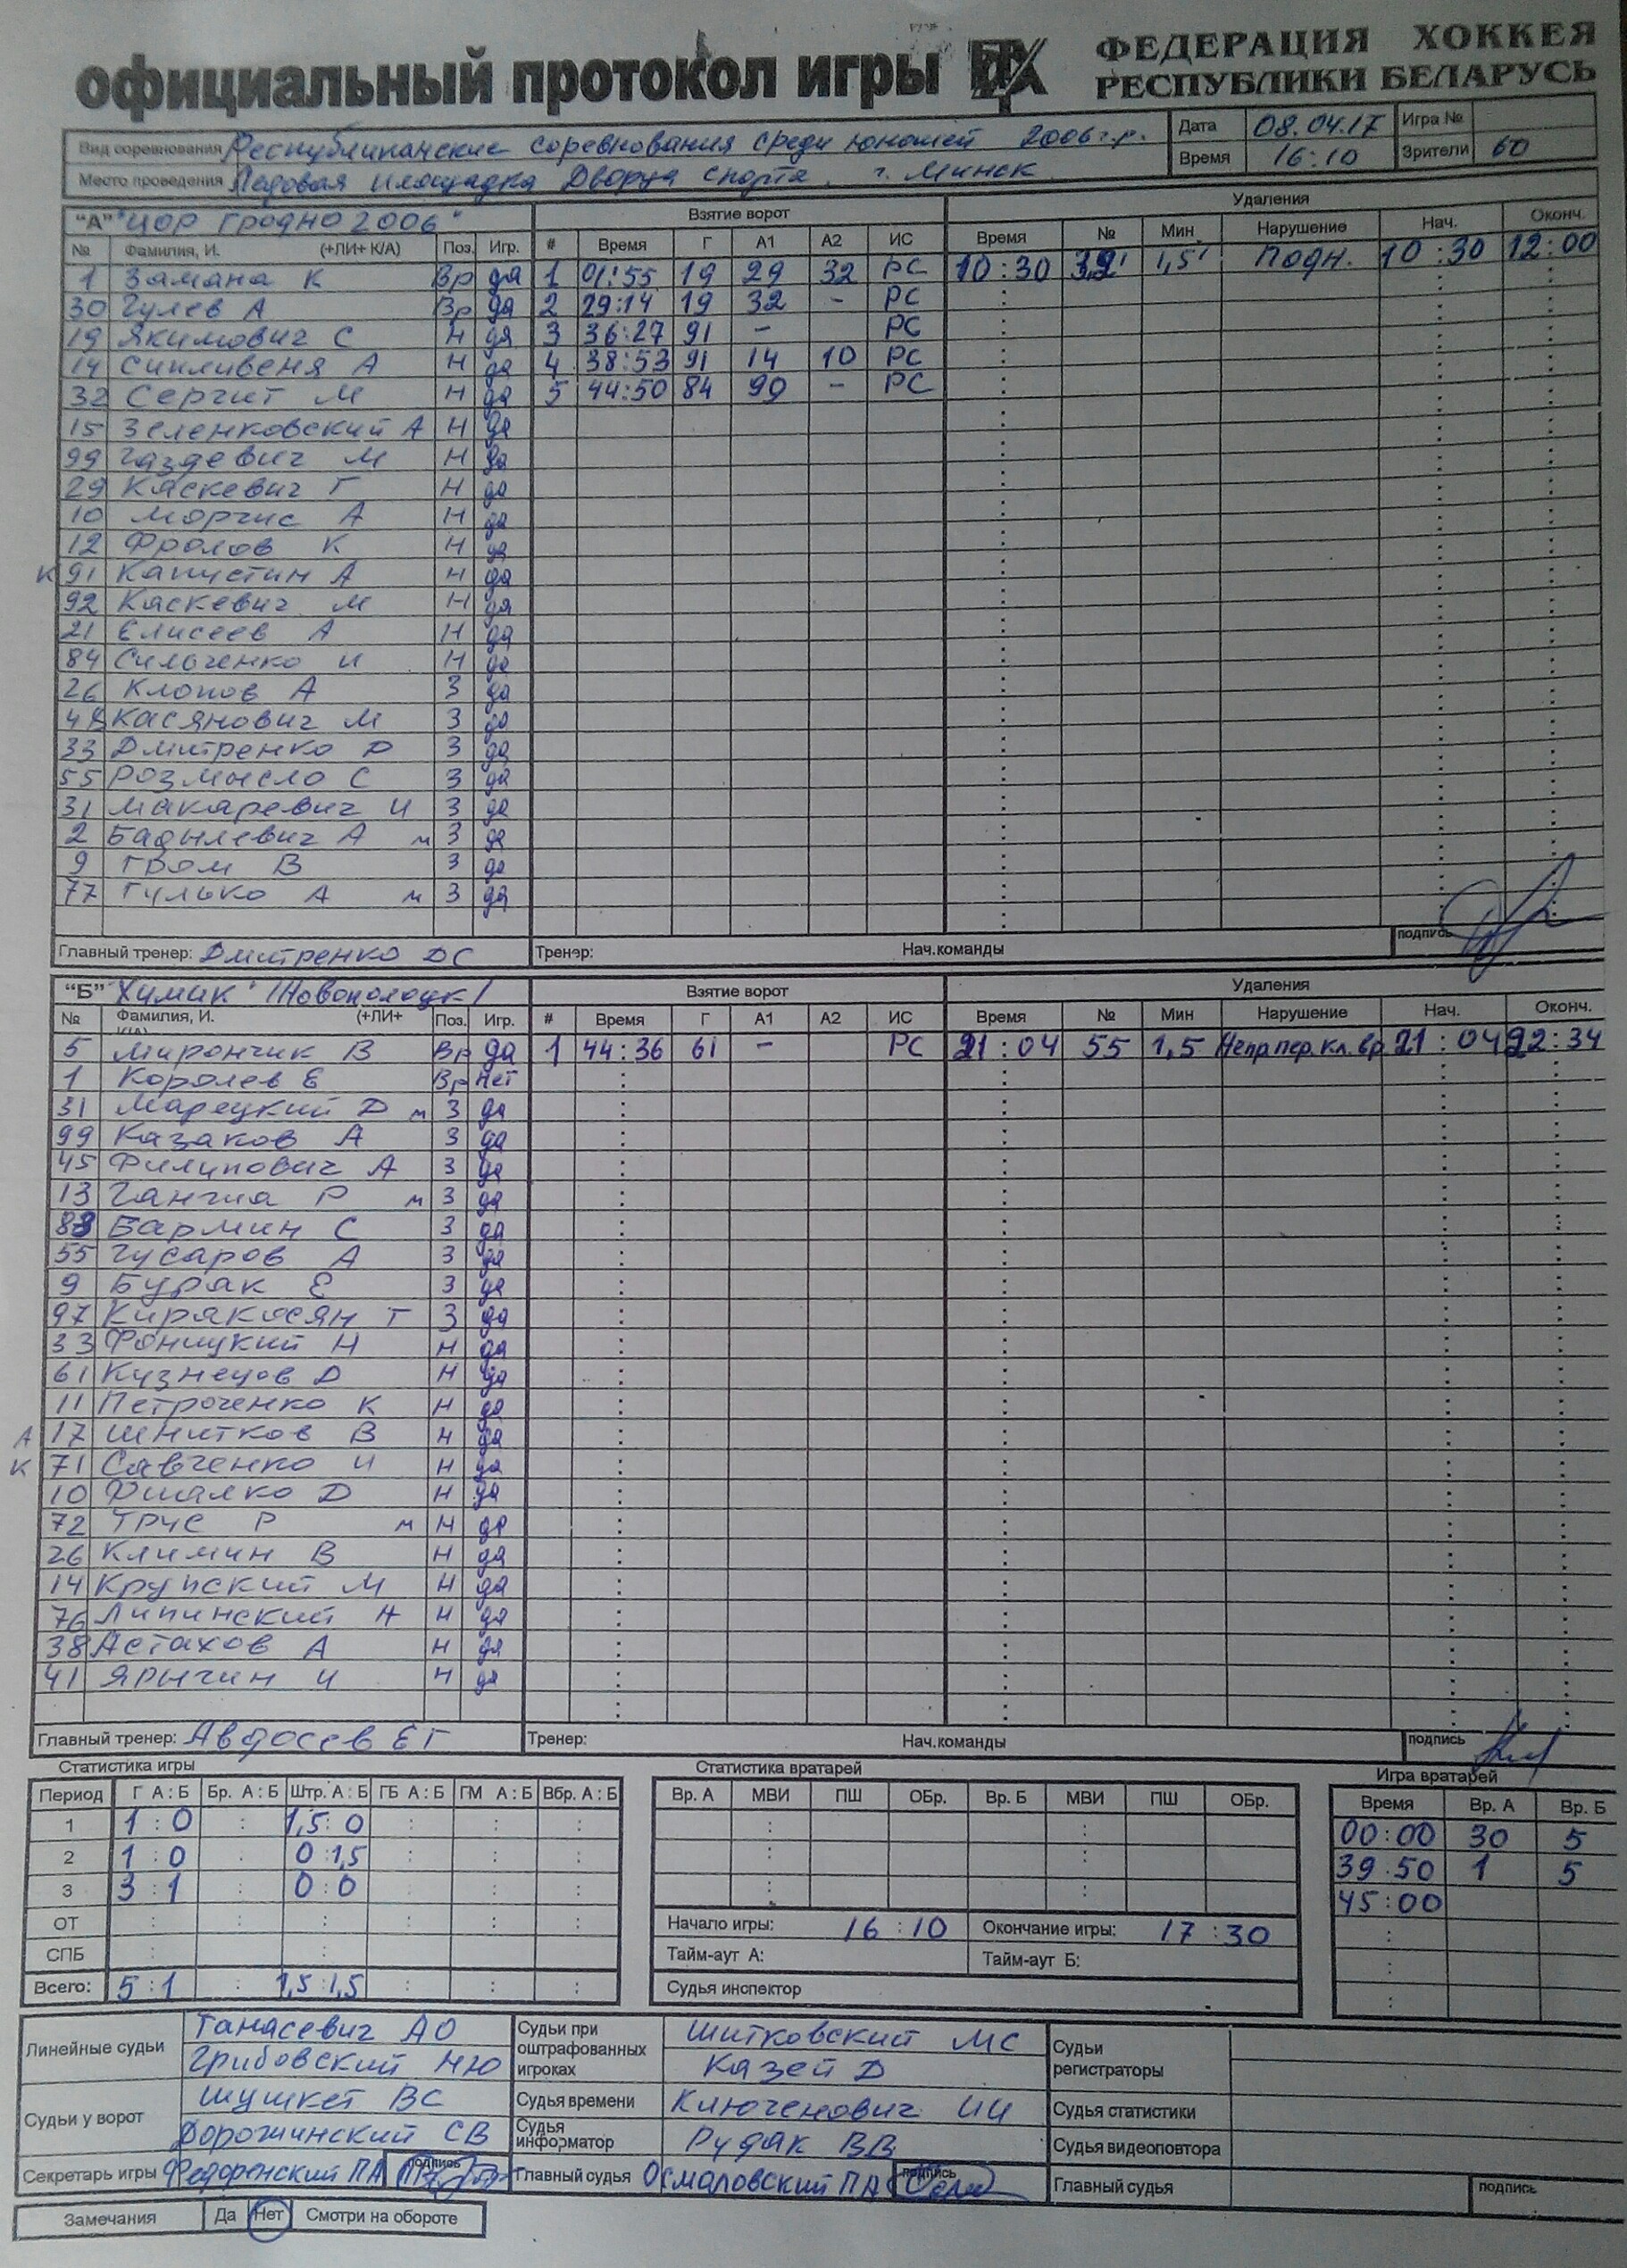 официальный протокол игры ФЕДЕРАЦИЯ ХОККЕЯ
РЕСПУБЛИКИ БЕЛАРУСЬ
Вид соревнования Республиканские соревнования среди юношей 2006 г.р. Дата 08.04.17 Игра №
Место проведения Ледовая площадка Дворца спорта г. Минск Время 16:10 Зрители 60
"А" "ЦОР Гродно 2006" Взятие ворот Удаления
№ Фамилия, И. (+ЛИ+ К/А) Поз. Игр. # Время Г А1 А2 ИС Время № Мин. Нарушение Нач. Оконч.
1 Замана К Вр да 1 01:55 19 29 32 РС 10:30 32 1,5' Подн. 10:30 12:00
30 Гулев А Вр да 2 29:14 19 32 - РС
19 Якимович С Н да 3 36:27 91 - РС
14 Синливеня А Н да 4 38:53 91 14 10 РС
32 Сергит М Н да 5 44:50 84 99 - РС
15 Зеленковский А Н да
99 Газдевич М Н да
29 Каскевич Г Н да
10 Моргис А Н да
12 Фролов К Н да
К 91 Капустин А Н да
92 Каскевич М Н да
21 Елисеев А Н да
84 Сильченко И Н да
26 Клопов А З да
Касянович М З да
33 Дмитренко Р З да
55 Розмысло С З да
31 Макаревич И З да
2 Бадылевич А м З да
9 Гром В З да
77 Гулько А м З да
Главный тренер: Дмитренко ДС Тренер: Нач.команды подпись
"Б" "Химик" /Новополоцк/ Взятие ворот Удаления
№ Фамилия, И. (+ЛИ+ К/А) Поз. Игр. # Время Г А1 А2 ИС Время № Мин Нарушение Нач. Оконч.
5 Мирончик В Вр да 1 44:36 61 - РС 21:04 55 1,5 Непр.пер.кл.вр 21:04 22:34
1 Королев Е Вр Нет
31 Марецкий D м З да
99 Казаков А З да
45 Филипович А З да
13 Гангиа Р м З да
88 Бармин С З да
55 Гусаров А З да
9 Бурак Е З да
97 Киракосян Т З да
33 Фоницкий Н Н да
61 Кузнецов D Н да
11 Петроченко К Н да
А 17 Шнитков В Н да
К 71 Савченко И Н да
10 Фиалко D Н да
72 Трус Р м Н да
26 Климин В Н да
14 Крупский М Н да
76 Липинский Н Н да
38 Астахов А Н да
41 Ярычин И Н да
Главный тренер: Авдосев ЕГ Тренер: Нач.команды подпись
Статистика игры Статистика вратарей Игра вратарей
Период Г А : Б Бр. А : Б Штр. А : Б ГБ А : Б ГМ А : Б Вбр. А : Б Вр. А МВИ ПШ ОБр. Вр. Б МВИ ПШ ОБр. Время Вр. А Вр. Б
1 1 : 0 1,5 : 0 00:00 30 5
2 1 : 0 0 : 1,5 39:50 1 5
3 3 : 1 0 : 0 45:00
ОТ Начало игры: 16:10 Окончание игры: 17:30
СПБ Тайм-аут А: Тайм-аут Б:
Всего: 5 : 1 1,5 : 1,5 Судья инспектор
Линейные судьи Танасевич АО Судьи при оштрафованных игроках Шитковский МС Судьи регистраторы
Грибовский НЮ Казей D
Судьи у ворот Шушкет ВС Судья времени Ключенович ИИ Судья статистики
Дорожинский СВ Судья информатор Рудак ВВ Судья видеоповтора
Секретарь игры Федоренский ПА подпись Главный судья Осмаловский ПА подпись Главный судья подпись
Замечания Да Нет Смотри на обороте